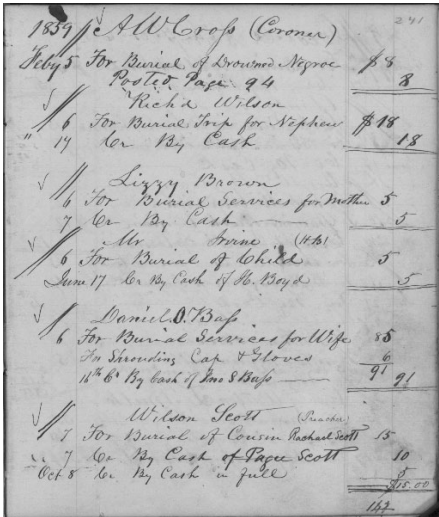 241
1859 A W Cross (Coroner)
Feby 5 For Burial of Drowned Negroe $8
Posted Page 94 8
Rich'd Wilson
6 For Burial Trip for Nephew $18
" 14 Cr By Cash 18
Lizzy Brown
6 For Burial Services for Mother 5
7 Cr By Cash 5
Mr Irvine
6 For Burial of Child 5
June 17 Cr By Cash of H. Boyd 5
Daniel O. Bass
6 For Burial Services for Wife 85
For Shrouding Cap & Gloves 6
91
16th Cr By Cash of Jno S Bass 91
Wilson Scott (Preacher)
7 For Burial of Cousin Rachael Scott 15
" 7 Cr By Cash of Page Scott 10
Oct 8 Cr By Cash in full 5
$15.00
142